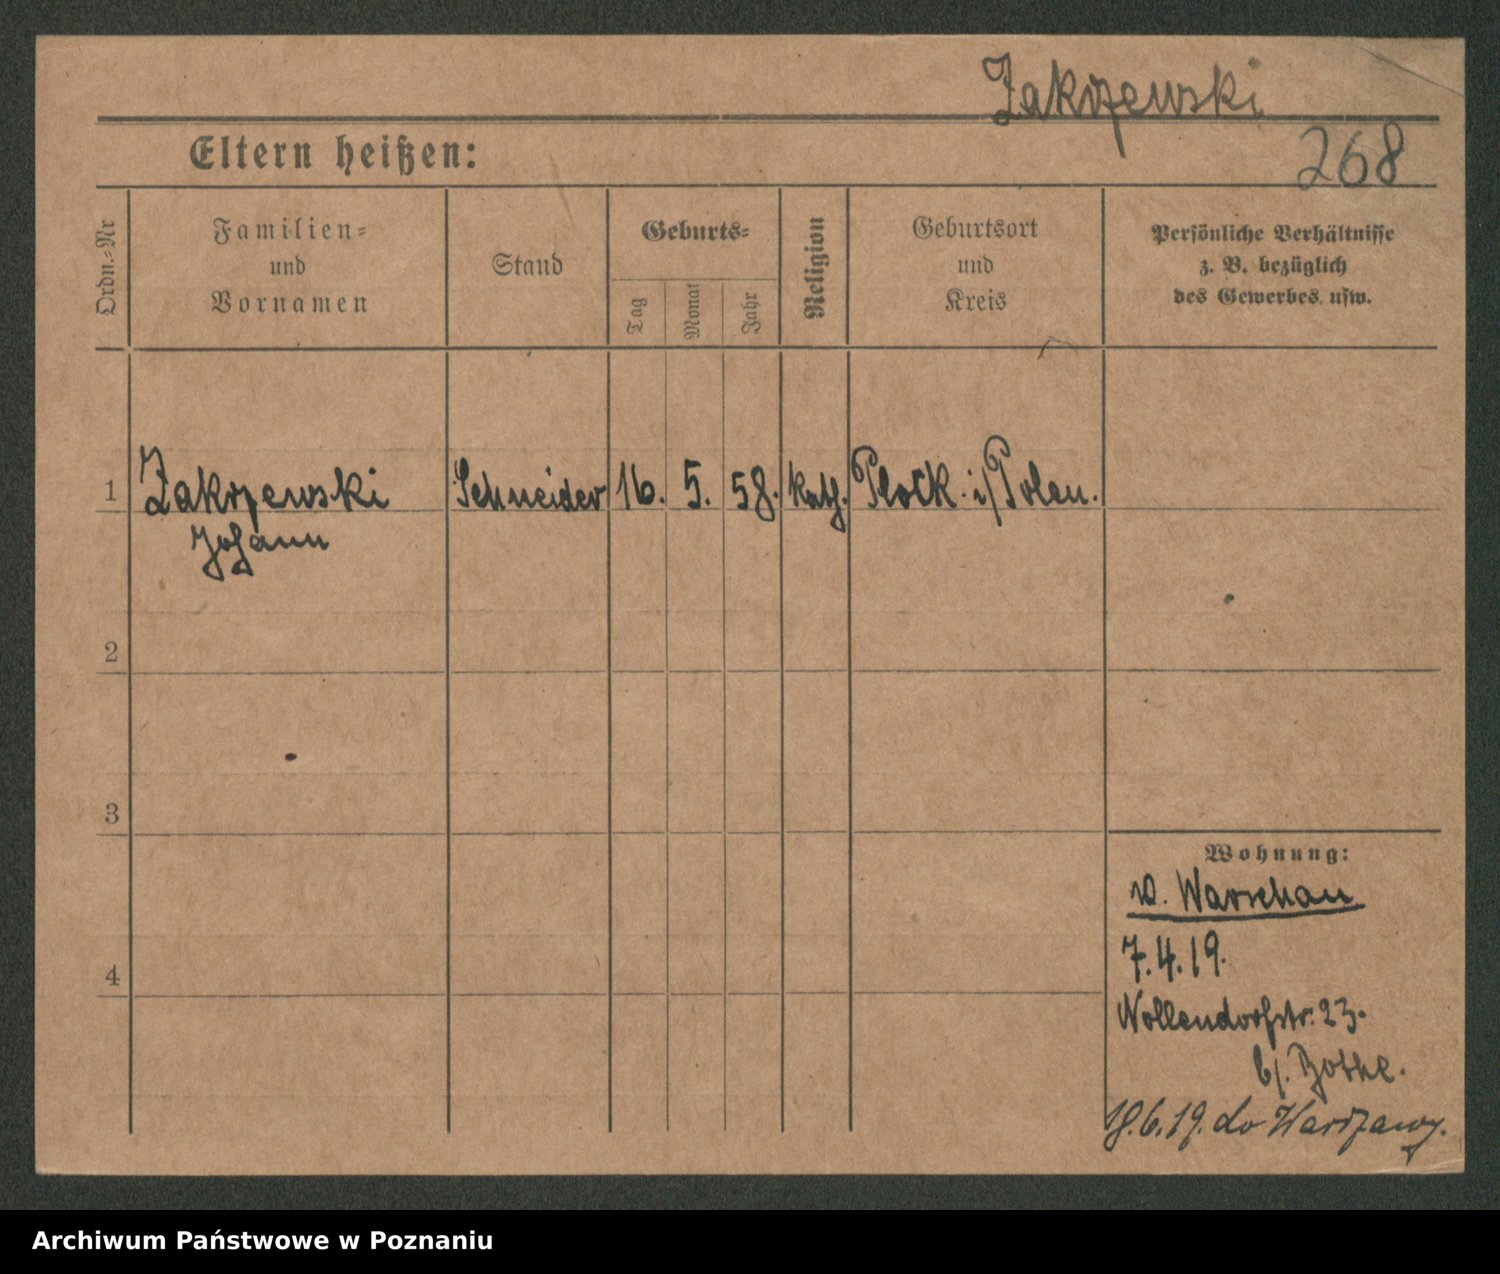 Zakrzewski
Eltern heißen:
268
Ordn.=Nr
Familien=
und
Vornamen
Stand
Geburts=
Tag
Monat
Jahr
Religion
Geburtsort
und
Kreis
Persönliche Verhältnisse
z. B. bezüglich
des Gewerbes usw.
1 Zakrzewski Schneider 16. 5. 58. kath. Plock. i/Polen.
Johann
2
3
4
Wohnung:
v. Warschau
7.4.19.
Nollendorfstr. 23.
b/.
18.6.19. do Warszawy.
Archiwum Państwowe w Poznaniu